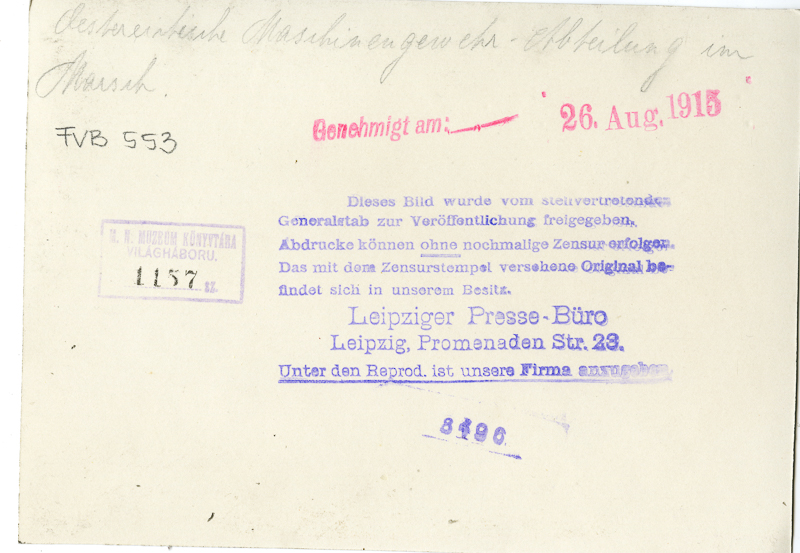 Oestereichische Maschinengewehr-Abteilung im
Marsch.
Genehmigt am:
26. Aug. 1915
FVB 553
Dieses Bild wurde vom stellvertretenden
Generalstab zur Veröffentlichung freigegeben.
Abdrucke können ohne nochmalige Zensur erfolgen.
Das mit dem Zensurstempel versehene Original be-
findet sich in unserem Besitz.
Leipziger Presse-Büro
Leipzig, Promenaden Str. 23.
Unter den Reprod. ist unsere Firma anzugeben.
N. MUZEUM KÖNYVTÁRA
VILÁGHÁBORU.
1157 sz.